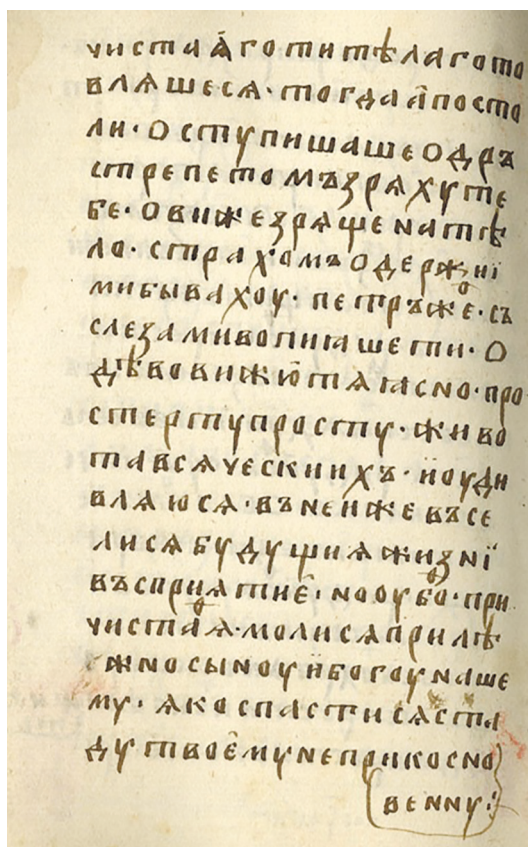 чистаѧ҆готитѣлагото
влѧшесѧ·тогдаа҆посто
ли·оступишашеодръ
стрепетомъзрѧхуте
бе·овижезрѧщенатѣ
ло·страхомъодержнї
мибывахоу·петръже·съ
слезамивопиꙗшети·о
дѣвовижю҆тѧꙗсно·про
стертупросту·живо
тавсѧческиихъ·ноуди
влѧюсѧ·вънеиженъсе
лисѧбудущиѧжизнї
въсприѧтиѥ҆·нооубо·при
чистаѧ·молисѧприлѣ
жносыноуи҆богоунаше
му·ѧкоспастисѧста
дутвоѥ҆мунеприкосно
венну⁘